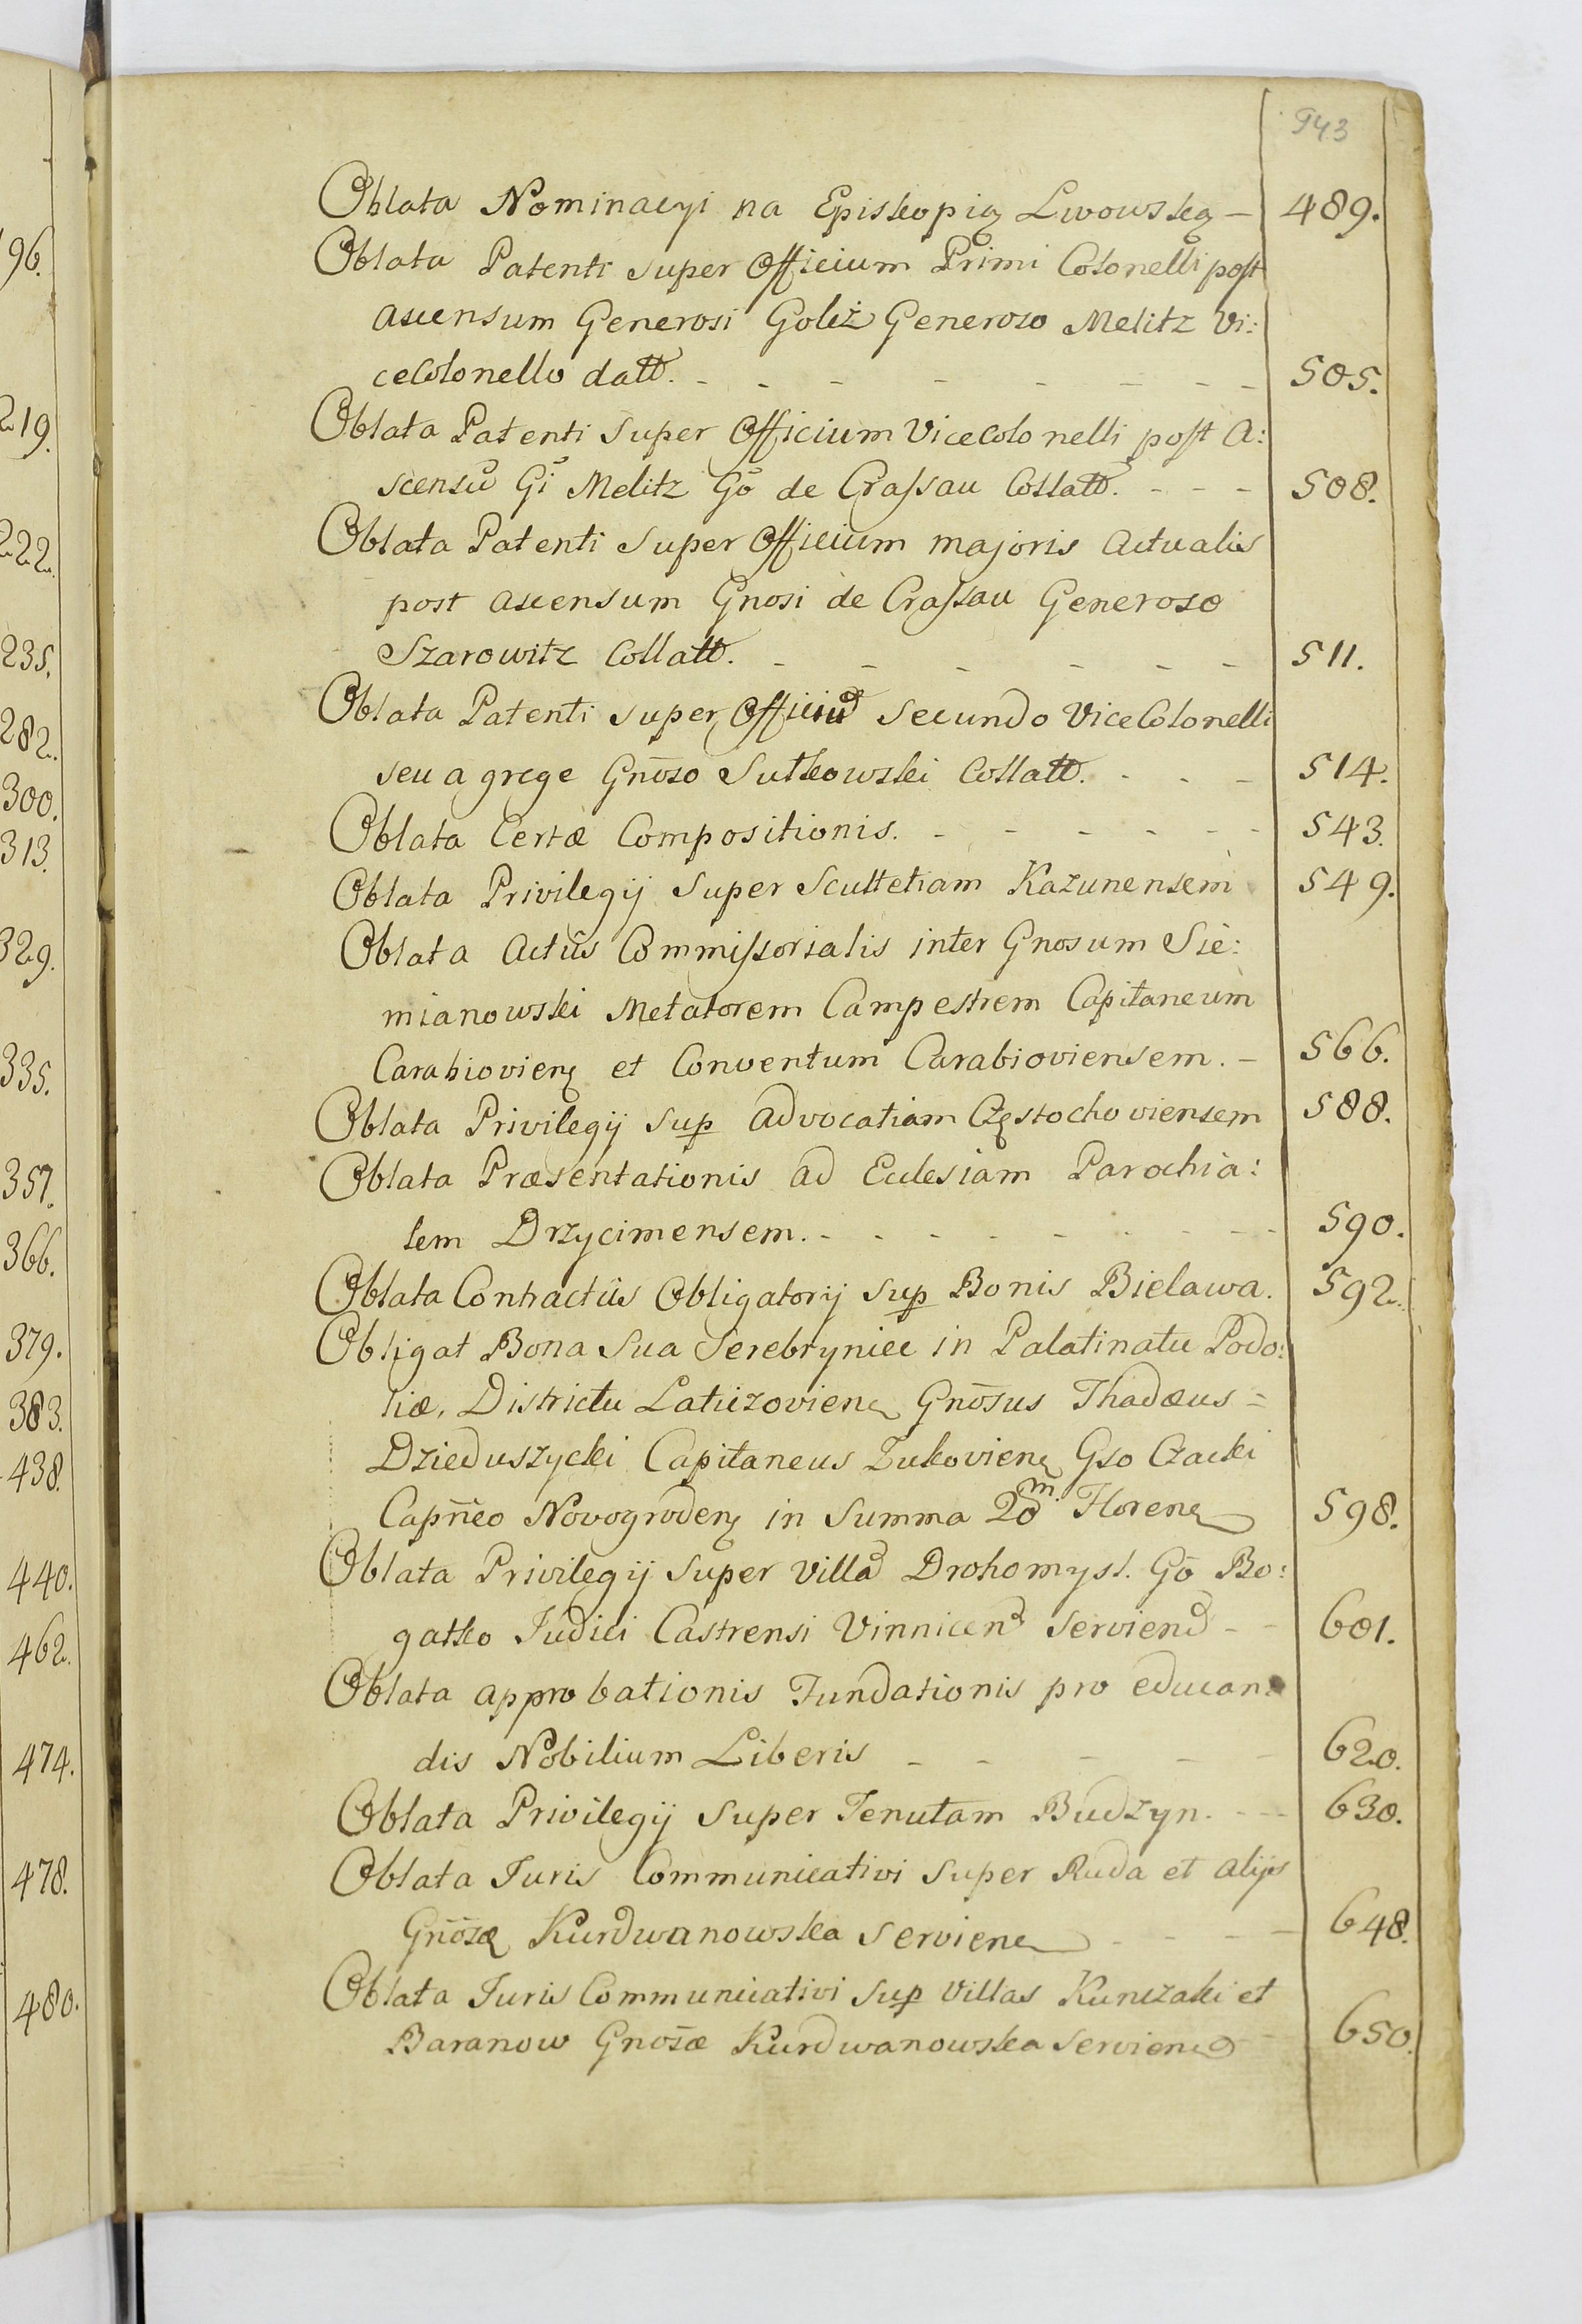 943
Oblata Nominacyi na Episkopią Lwowską – 489.
Oblata Patenti super Officium Primi Colonelli post
ascensum Generosi Golcz Generoso Melitz Vi:
ceColonello datt. - - - - - - - 505.
Oblata Patenti super Officium ViceColonelli post A:
scensū Gi Melitz Gō de Crassau Collatt. - - - 508.
Oblata Patenti super Officium majoris Actualis
post ascensum Gnosi de Crassau Generoso
Szarowitz Collatt. - - - - - - 511.
Oblata Patenti super Officiū Secundo ViceColonelli
seu a grege Gnōso Sutkowski Collatt. - - - 514.
Oblata Certæ Compositionis. - - - - - - 543.
Oblata Privilegij super Scultetiam Kazunensem 549.
Oblata Actûs Commissorialis inter Gnosum Sie:
mianowski Metatorem Campestrem Capitaneum
Carabiovien et Conventum Carabioviensem. – 566.
Oblata Privilegij sup Advocatiam Częstochoviensem 588.
Oblata Præsentationis ad Ecclesiam Parochia:
lem Drzycimensem. - - - - - - - - 590.
Oblata Contractûs Obligatorij sup Bonis Bielawa. 592.
Obligat Bona sua Serebryniec in Palatinatu Podo:
liæ, Districtu Laticzovien Gnōsus Thadæus =
Dzieduszycki Capitaneus Zukovien Gso Czacki
Capn̄eo Novogroden in Summa 20 m. Floren 598.
Oblata Privilegij super villa Drohomysl. Gō Bo:
gatko Judici Castrensi Vinnicen Serviend - - 601.
Oblata approbationis Fundationis pro educan:
dis Nobilium Liberis - - - - - 620.
Oblata Privilegij super Tenutam Budzyn. - - - 630.
Oblata Juris Communicativi super Ruda et alijs
Gnōsæ Kurdwanowska servien - - - - 648.
Oblata Juris Communicativi sup Villas Kunczaki et
Baranow Gnōsæ Kurdwanowska servien - 650.
96.
219.
222.
235.
282.
300.
313.
329.
335.
357.
366.
379.
383.
438.
440.
462.
474.
478.
480.